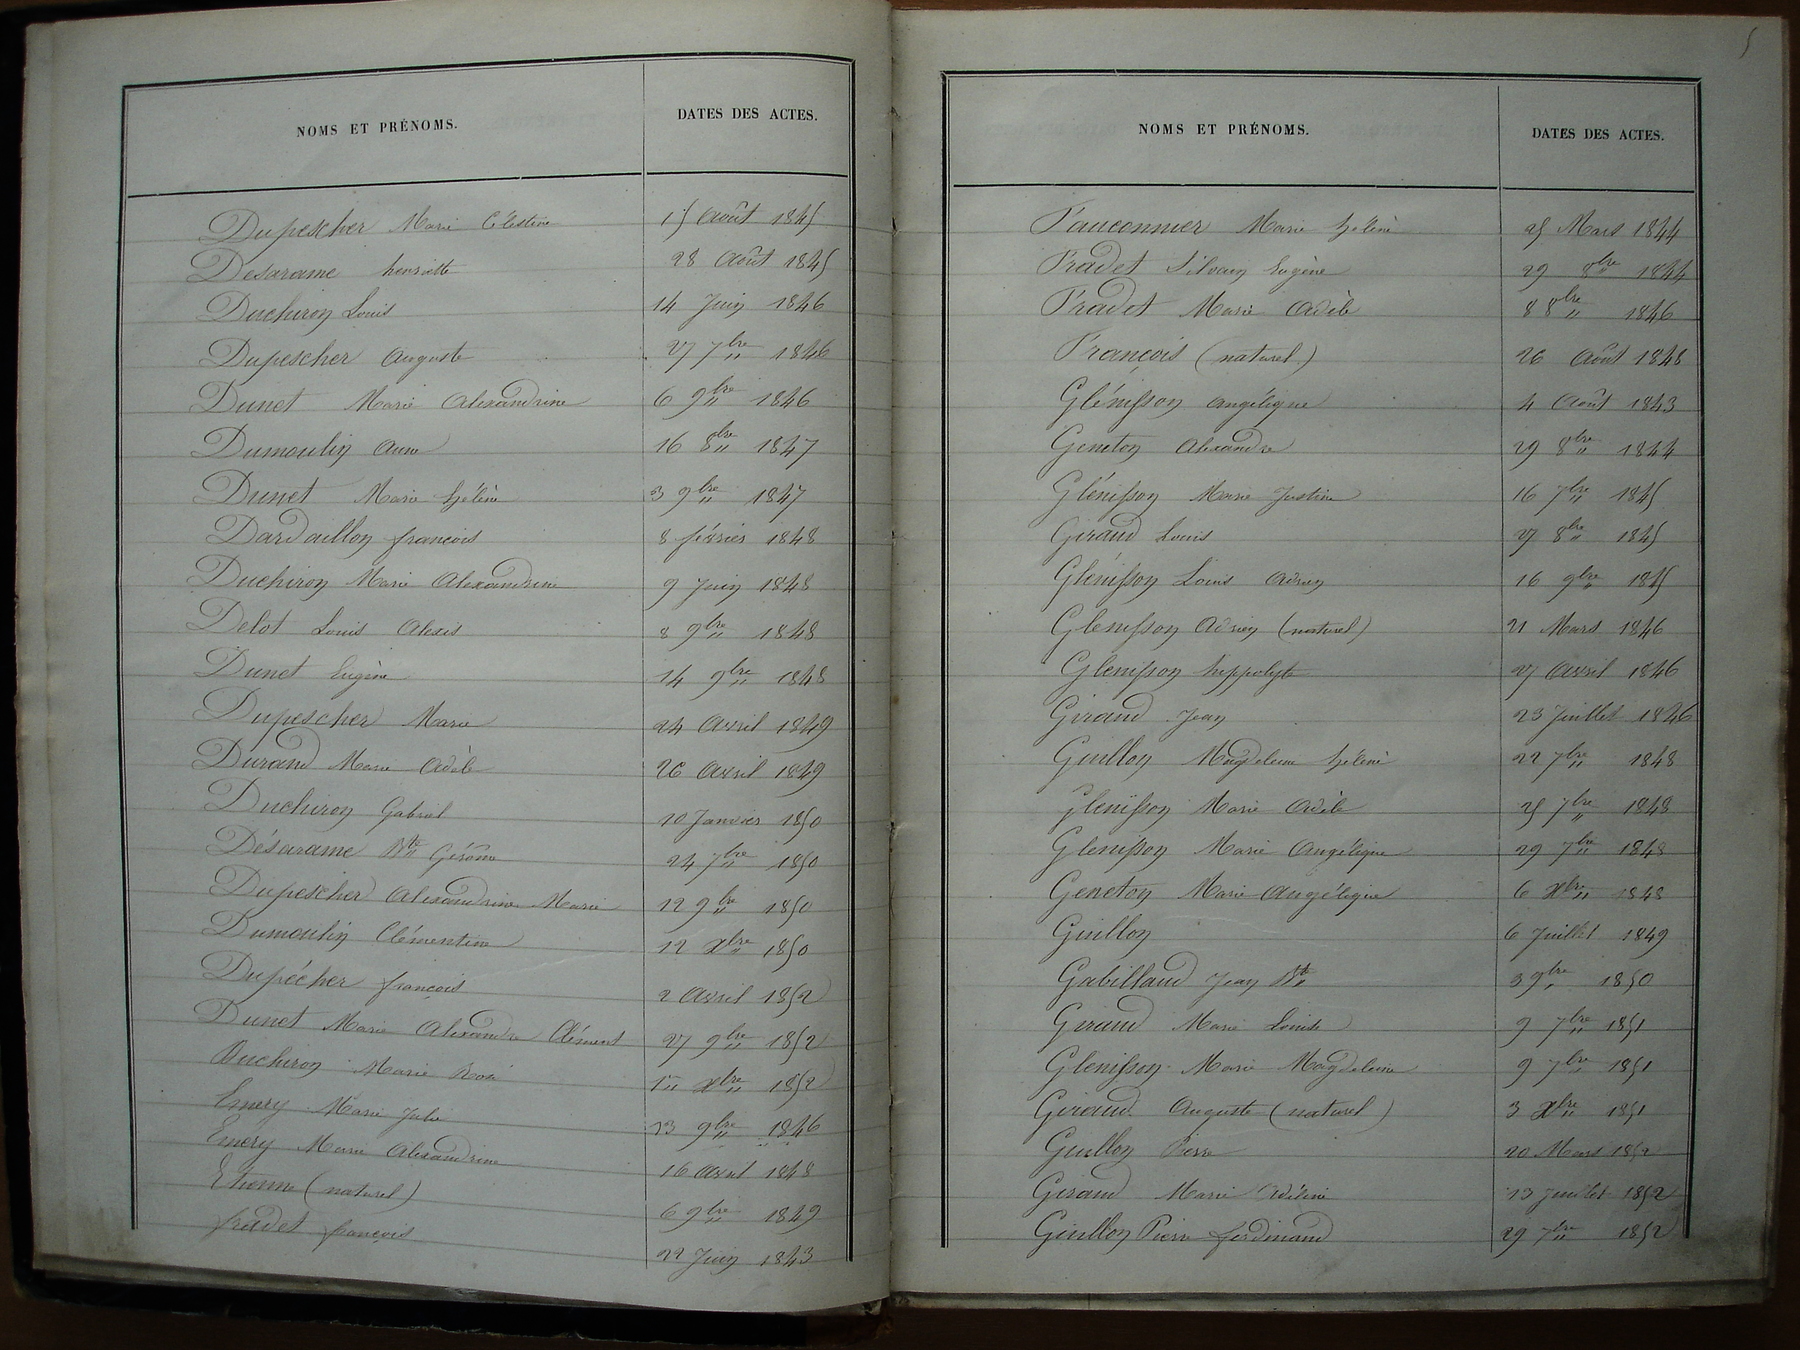 NOMS ET PRÉNOMS. DATES DES ACTES.
Dupescher Marie Célestine 15 Août 1845
Desarame henriette 28 Août 1845
Duchiron Louis 14 Juin 1846
Dupescher Auguste 27 7bre 1846
Dunet Marie Alexandrine 6 9bre 1846
Dumoulin Anne 16 8bre 1847
Dunet Marie hélène 3 9bre 1847
Dardaillon françois 8 février 1848
Duchiron Marie Alexandrine 9 Juin 1848
Delot Louis Alexis 8 9bre 1848
Dunet Eugène 14 9bre 1848
Dupescher Marie 24 Avril 1849
Durand Marie Adèle 26 Avril 1849
Duchiron Gabriel 10 Janvier 1850
Désarame Bte Gérôme 24 7bre 1850
Dupescher Alexandrine Marie 12 9bre 1850
Dumoulin Clémentine 12 Xbre 1850
Dupécher françois 2 Avril 1852
Dunet Marie Alexandre Clément 27 9bre 1852
Duchiron Marie Rose 1er Xbre 1852
Emery Marie Julie 13 9bre 1846
Emery Marie Alexandrine 16 Avril 1848
Etienne (naturel) 6 9bre 1849
fradet françois 22 Juin 1843
5
NOMS ET PRÉNOMS. DATES DES ACTES.
Fauconnier Marie hélène 25 Mars 1844
Fradet Silvain Eugène 29 8bre 1844
Fradet Marie Adèle 8 8bre 1846
François (naturel) 26 Août 1848
Glénisson Angélique 4 Août 1843
Geneton Alexandre 29 8bre 1844
Glénisson Marie Justine 16 7bre 1845
Giraud Louis 27 8bre 1845
Glénisson Louis Adrien 16 9bre 1845
Glenisson Adrien (naturel) 21 Mars 1846
Glenisson hippolyte 27 Avril 1846
Giraud Jean 23 Juillet 1846
Guillon Magdeleine hélène 22 7bre 1848
Glenisson Marie Adèle 25 7bre 1848
Glenisson Marie Angélique 29 7bre 1848
Geneton Marie Angélique 6 Xbre 1848
Guillon 6 Juillet 1849
Gabillaud Jean Bte 3 9bre 1850
Giraud Marie Louise 9 7bre 1851
Glenisson Marie Magdeleine 9 7bre 1851
Giraud Auguste (naturel) 3 Xbre 1851
Guillon Pierre 20 Mars 1852
Giraud Marie Adeline 13 Juillet 1852
Guillon Pierre ferdinand 29 7bre 1852